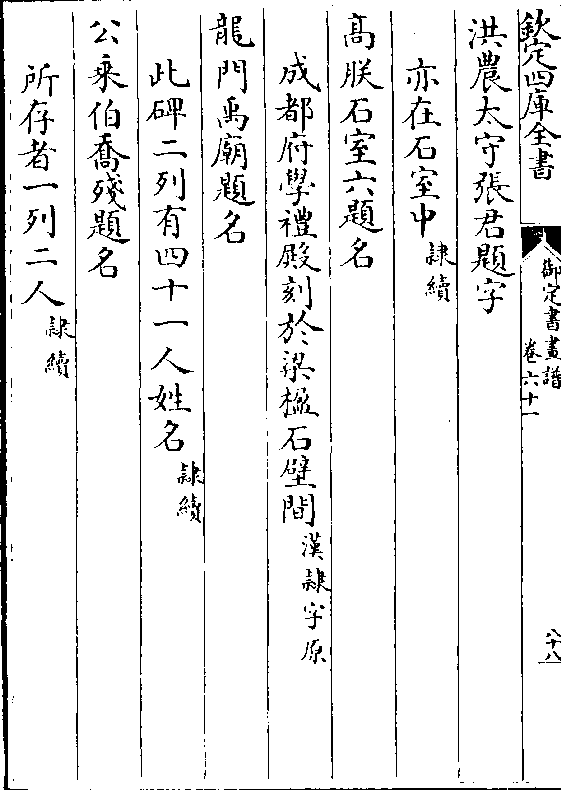 欽定四庫全書
御定書畫譜
卷六十一
八十八
洪農太守張君題字
亦在石室中隷續
髙朕石室六題名
成都府學禮殿刻於梁楹石壁間漢隷字原
龍門禹廟題名
此碑二列有四十一人姓名隷續
公乘伯喬殘題名
所存者一列二人隷續